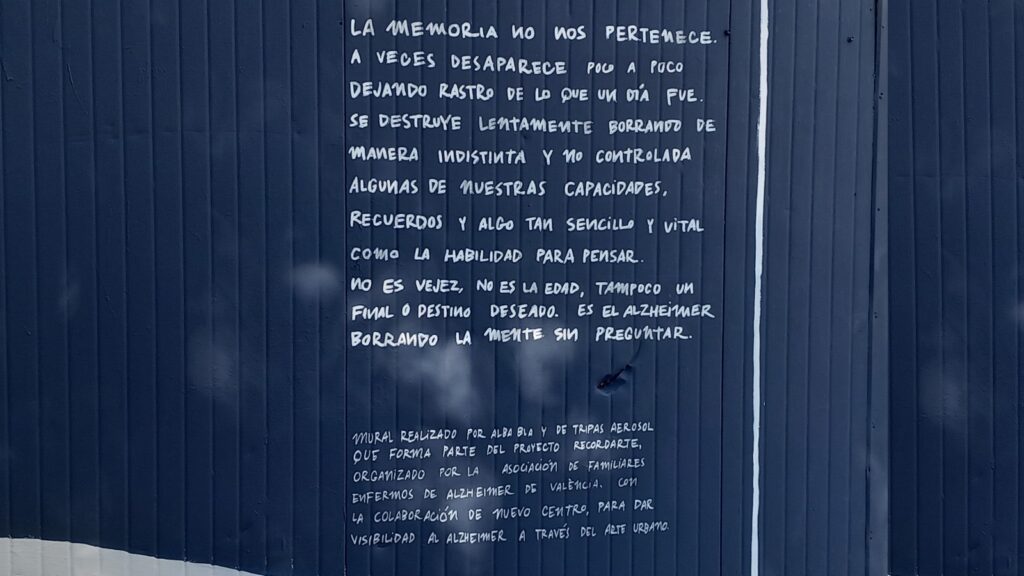 LA MEMORIA NO NOS PERTENECE.
A VECES DESAPARECE POCO A POCO
DEJANDO RASTRO DE LO QUE UN DÍA FUE.
SE DESTRUYE LENTAMENTE BORRANDO DE
MANERA INDISTINTA Y NO CONTROLADA
ALGUNAS DE NUESTRAS CAPACIDADES,
RECUERDOS Y ALGO TAN SENCILLO Y VITAL
COMO LA HABILIDAD PARA PENSAR.
NO ES VEJEZ, NO ES LA EDAD, TAMPOCO UN
FINAL O DESTINO DESEADO. ES EL ALZHEIMER
BORRANDO LA MENTE SIN PREGUNTAR.
MURAL REALIZADO POR ALBA BLA Y DE TRIPAS AEROSOL
QUE FORMA PARTE DEL PROYECTO RECORDARTE,
ORGANIZADO POR LA ASOCIACIÓN DE FAMILIARES
ENFERMOS DE ALZHEIMER DE VALÈNCIA. CON
LA COLABORACIÓN DE NUEVO CENTRO, PARA DAR
VISIBILIDAD AL ALZHEIMER A TRAVÉS DEL ARTE URBANO.